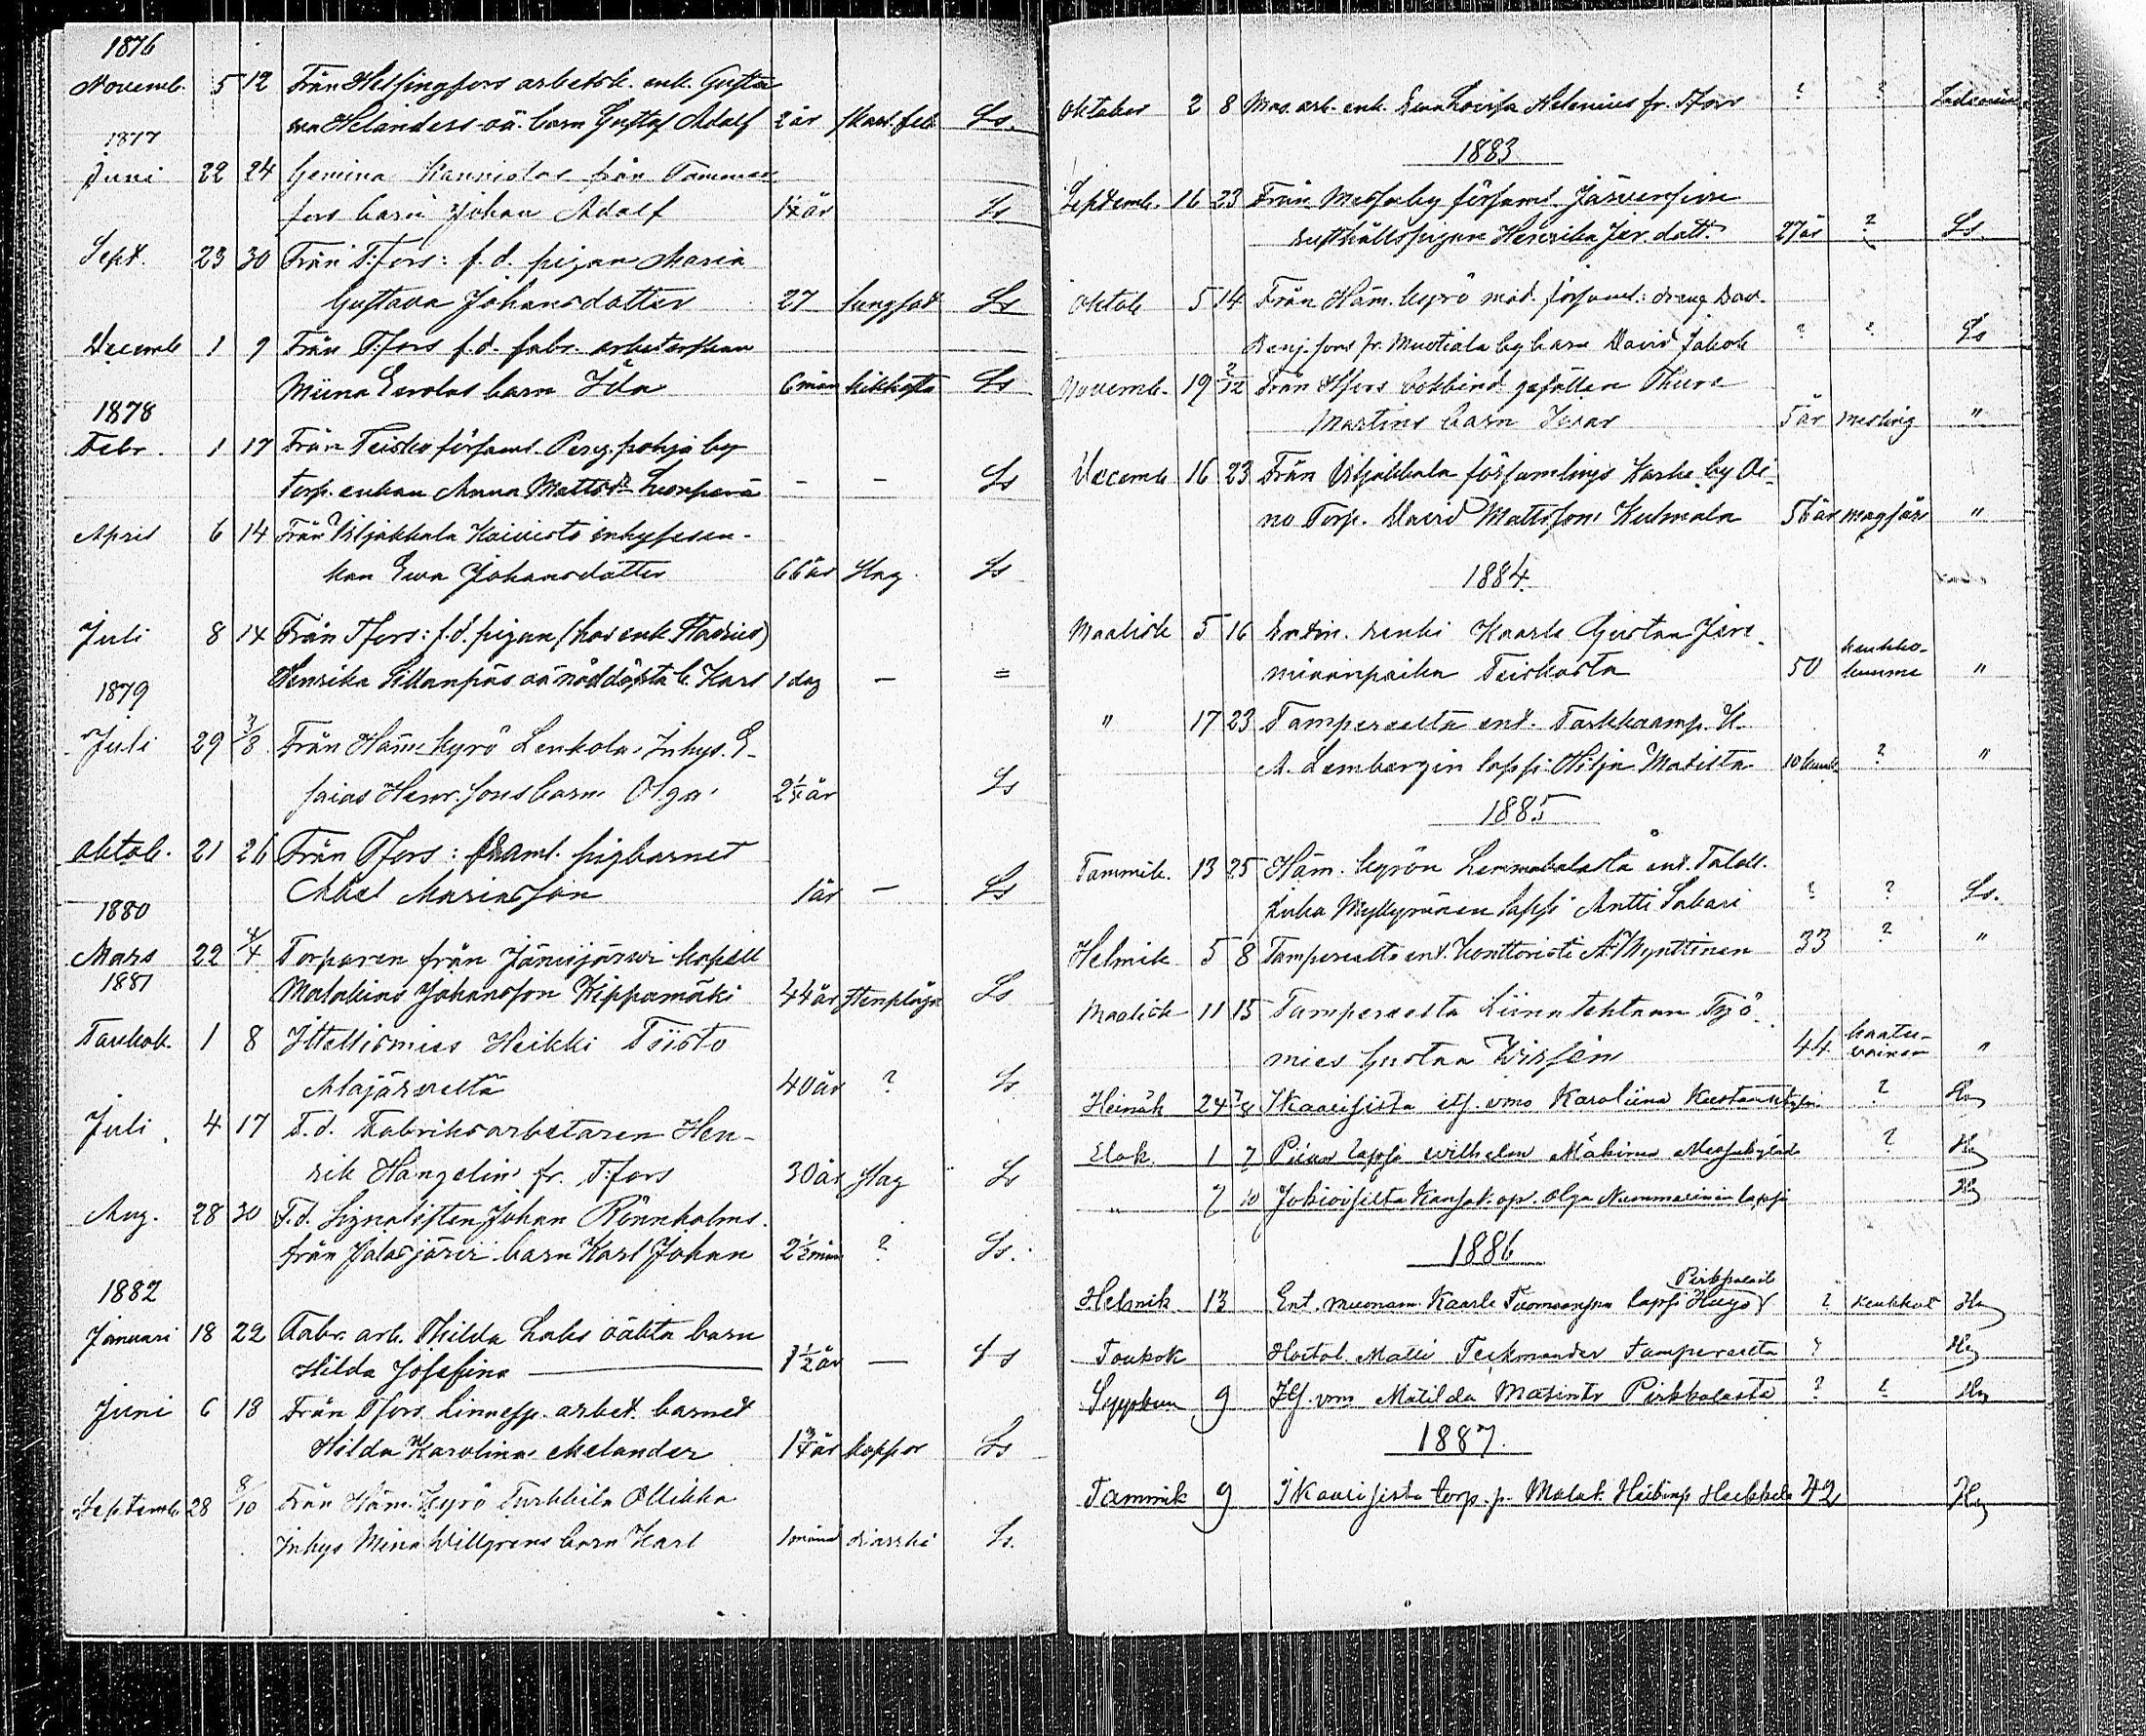 1876
Novemb. 5 12 Från Helsingfors arbetsk. enk. Gusta
va Helanders oä. barn Gustaf Adolf 2 år skarl. feb. Ls.
1877
Juni 22 24 Gemina Kanniolas från Tammer
fors barn Johan Adolf 1¼ år Ls
Sept. 23 30 Från T:fors: f.d. pigan Maria
Gustava Johansdotter 27 lungsot Ls
Decemb 1 9 Från T:fors f.d. fabr. arbeterskan
Miina Eerolas barn Ida 6 mån kikhosta Ls
1878
Febr. 1 17 Från Teisko församl. by
torp. enkan Anna Mattsdr - - Ls
April 6 14 Från Viljakkala Koivisto inhysesen-
kan Ewa Johansdotter 66 år Slag Ls
Juli 8 14 Från T:fors: f.d. pigan (hos enk. Stadius)
Henrika Sillanpääs oä nöddöpta b. Karl 1 dag — =
1879
Juli 29 3/8 Från Häm-Kyrö Lenkola, Inhys. E-
saias Henr.sons barn Olga 2¼ år Ls
Oktob. 21 26 Från T:fors: framl. pigbarnet
Abel Mariasson 1 år — Ls
1880
Mars 22 4/4 Torparen från Jämijärwi kapell
Malakias Johansson Kippamäki 44 år stenplåga Ls
1881
Toukok. 1 8 Itsellismies Heikki Töisto
Alajärveltä 40 år ? Ls
Juli 4 17 F.d. Fabriksarbetaren Hen-
rik Hangelin fr. T:fors 30 år slag Ls
Aug. 28 30 F.d. Signalisten Johan Rönnholms
från Jalasjärvi barn Karl Johan 2½ mån ? Ls.
1882
Januari 18 22 Fabr. arb. Thilda Laks oäkta barn
Hilda Josefina 1½ år — Ls
Juni 6 18 Från T:fors Linnesp. arbet. barnet
Hilda Karolina Melander 1¾ år koppor Ls
Septemb. 28 8/10 Från Häm. Kyrö Turkkila Ollikka
Inhys Mina Willgrens barn Karl 1 månad diarrhé Ls.
Oktober 2 8 Mas. arb. enk. Ewa Lovisa Helenius fr. T:fors ? ?
1883
Septemb. 16 23 Från Messuby församl. Järvensivu
rusthållspigan Henrika Jer. dott. 27 år ? Ls.
Oktob 5 14 Från Häm. Kyrö mod. församl: dreng Dav.
Benj. sons fr. Mustiala by barn David Jakob ? ? Ls
Novemb. 19 2/12 Från H:fors bokbind. gesällen Thure
Martins barn Ivar 5 år mesling "
Decemb 16 23 Från Viljakkala församlings Karhe by Ai-
no Torp. David Mattsson Kulmala 56 år magsår "
1884.
Maalisk 5 16 Entin. renki Kaarle Gustaa Jere-
miaanpoika Teiskosta 50 keuhko-
kuume "
" 17 23 Tampereelta ent. Tarkkaamp. K.
A. Lembergin lapsi Hilja Matilta 10 kuuk. ? "
1885
Tammik. 13 25 Häm. Kyrön Lemmakalasta ent. Talol.
Juha Myllymäen lapsi Antti Sakari ? ? Ls.
Helmik 5 8 Tampereelta ent. Konttoristi A. Mynttinen 33 ? "
Maalisk 11 15 Tampereelta Liinatehtaan Työ-
mies Gustaa Wirsén 44 kaatu-
vainen "
Heinäk 24 2/8 Ikaalisista itss. vmo Karoliina Kustaantytär ? Hn
Elok. 1 7 Piian lapsi Wilhelm Mäkinen Messukylästä ? Hn
" 7 10 Jokioisilta Kansak. op. Olga Nummelinin lapsi Hn
1886
Pirkkalast
Helmik 13 Ent. muonam. Kaarle Tuomaanpn lapsi Hugo ? keuhkot Hn
Toukok Matti Teckmander Tampereelta ? Hn
Syyskuu 9 Itss. vmo Matilda Matintr Pirkkalasta ? ? Hn
1887.
Tammik 9 Ikaalisista torp. p. Malak. Heikinp. Heikkilä 42 Hn